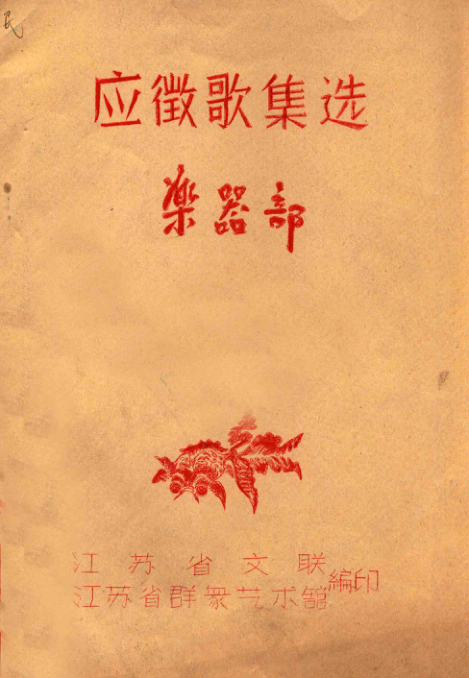 民
应徵歌集选
楽器部
江苏省文联
江苏省群众艺术舘
編印